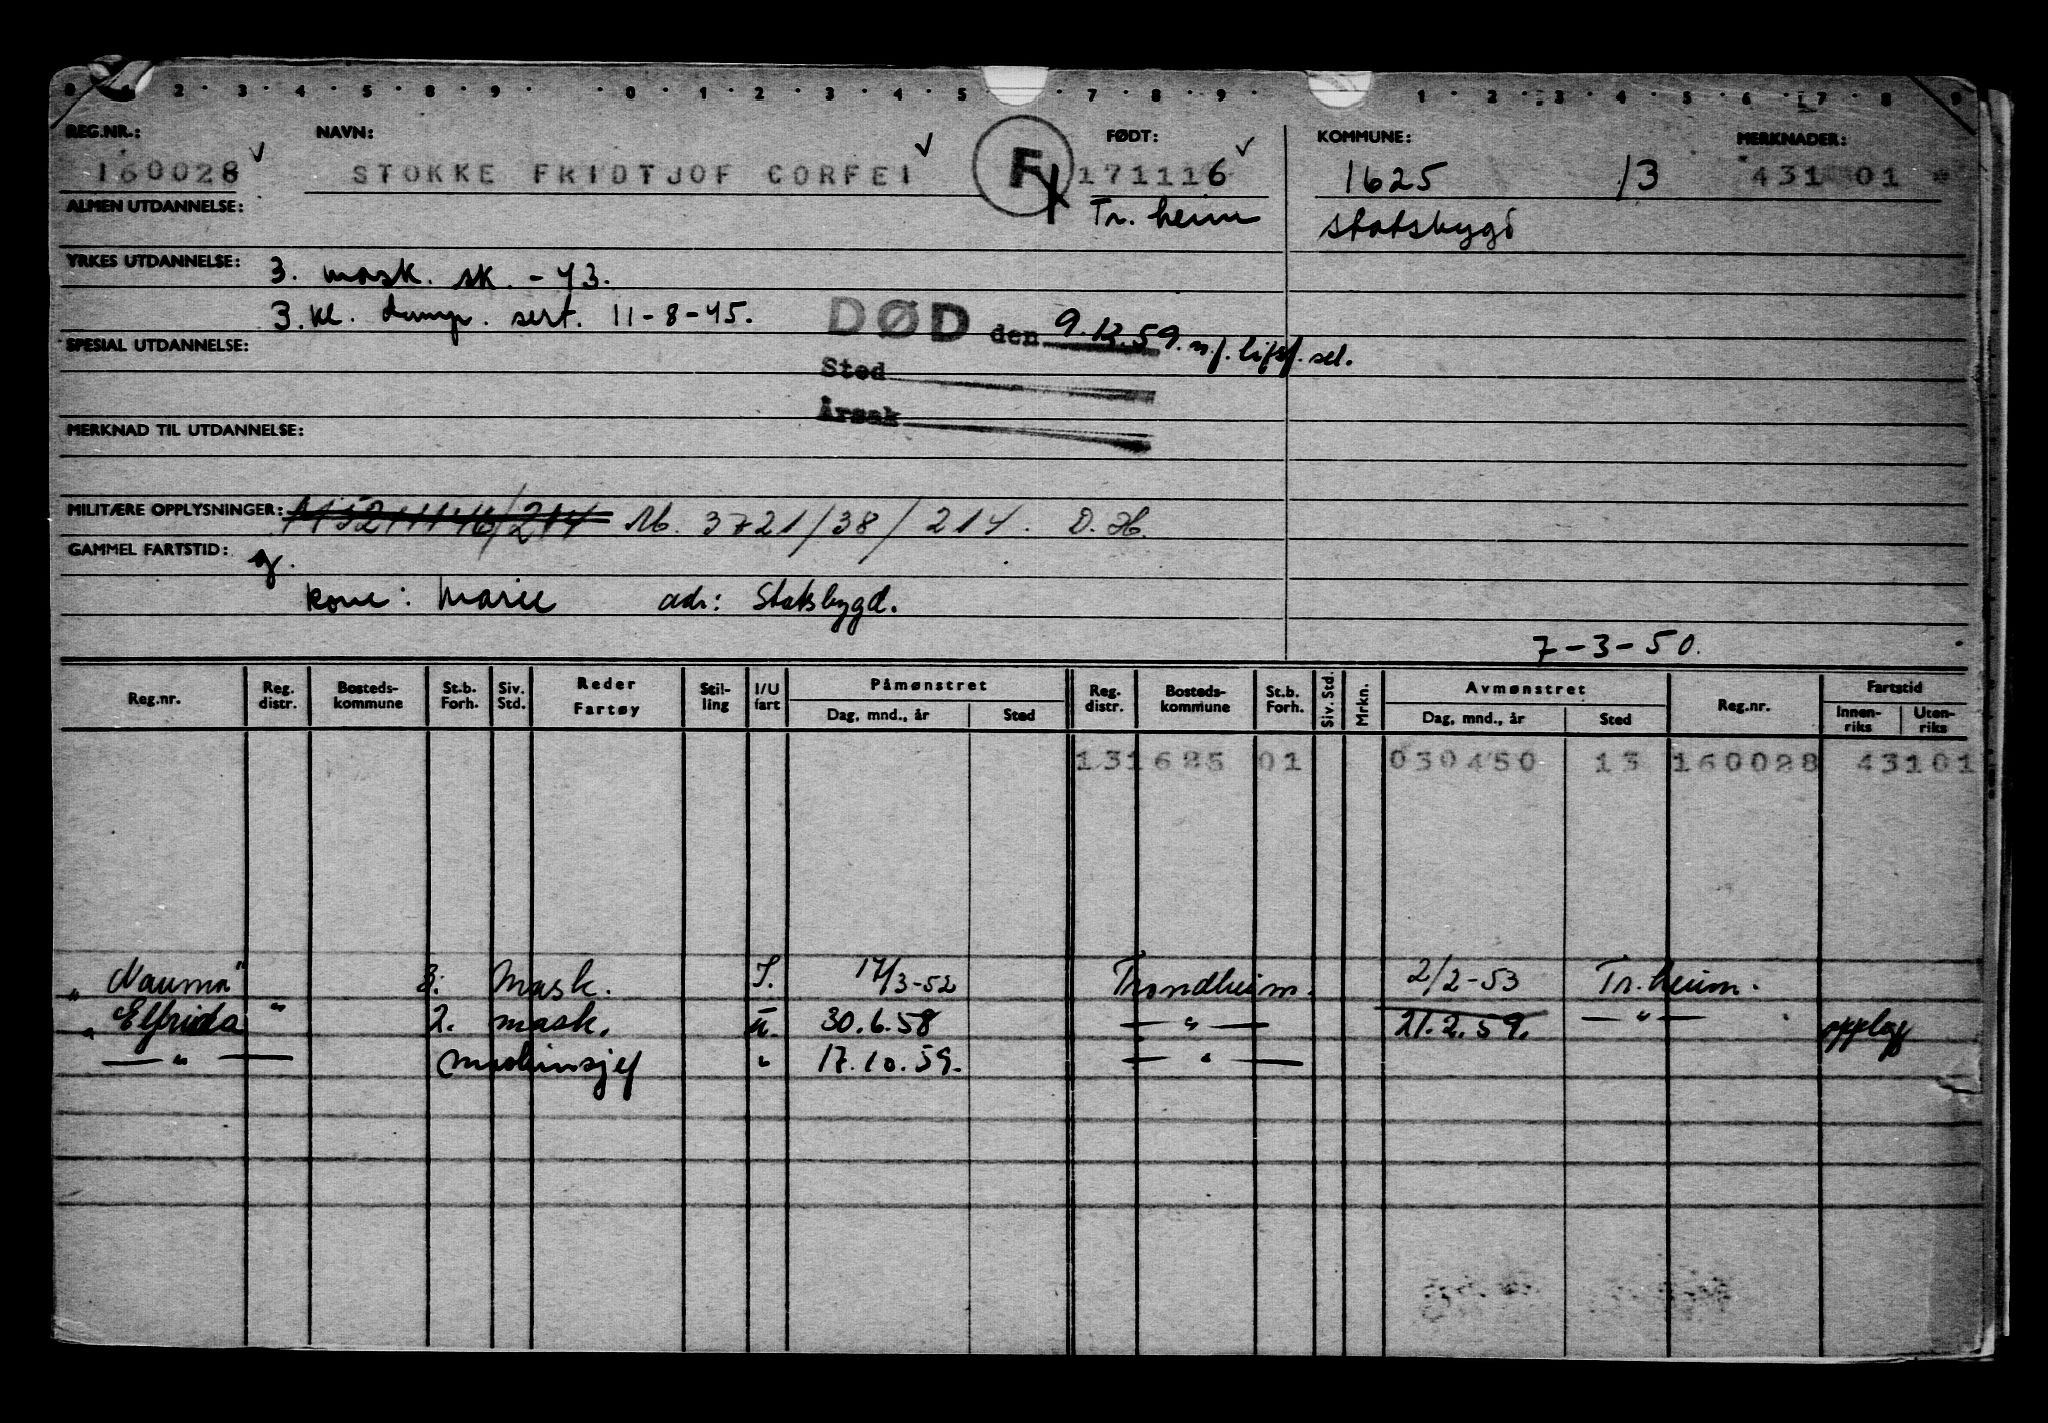 0 1 2 3 4 5 8 9 0 1 2 3 4 5 7 8 9 1 2 3 4 5 6 7 8 9
REG.NR.: NAVN: FØDT: KOMMUNE: MERKNADER:
160028 STOKKE FRIDTJOF CORFEI F 171116 1625 13 431 01
ALMEN UTDANNELSE: Tr. heim Statsbygd
YRKES UTDANNELSE: 3. mask. sk. -43.
3. kl. damp. sert. 11-8-45.
DØD den 9.12.59.
SPESIAL UTDANNELSE:
Sted
Årsak
MERKNAD TIL UTDANNELSE:
MILITÆRE OPPLYSNINGER: M. 3721/38/214. D.H.
GAMMEL FARTSTID: g.
kone: Marie adr: Statsbygd.
7-3-50.
Reg.nr. Reg. distr. Bosteds-kommune St.b. Forh. Siv. Std. Reder Fartøy Stil-ling I/U fart Påmønstret Reg. distr. Bosteds-kommune St.b. Forh. Siv. Std. Mrkn. Avmønstret Reg.nr. Fartstid
Dag, mnd., år Sted Dag, mnd., år Sted Innen-riks Uten-riks
131625 01 030450 13 160028 43101
"Nauma" 3. Mask. I. 17/3-52 Trondheim. 2/2-53 Tr.heim.
"Elfrida" 2. mask. u. 30.6.58 — " — 21.2.59. — " — opplag
— " — maskinsjef " 17.10.59. — " —